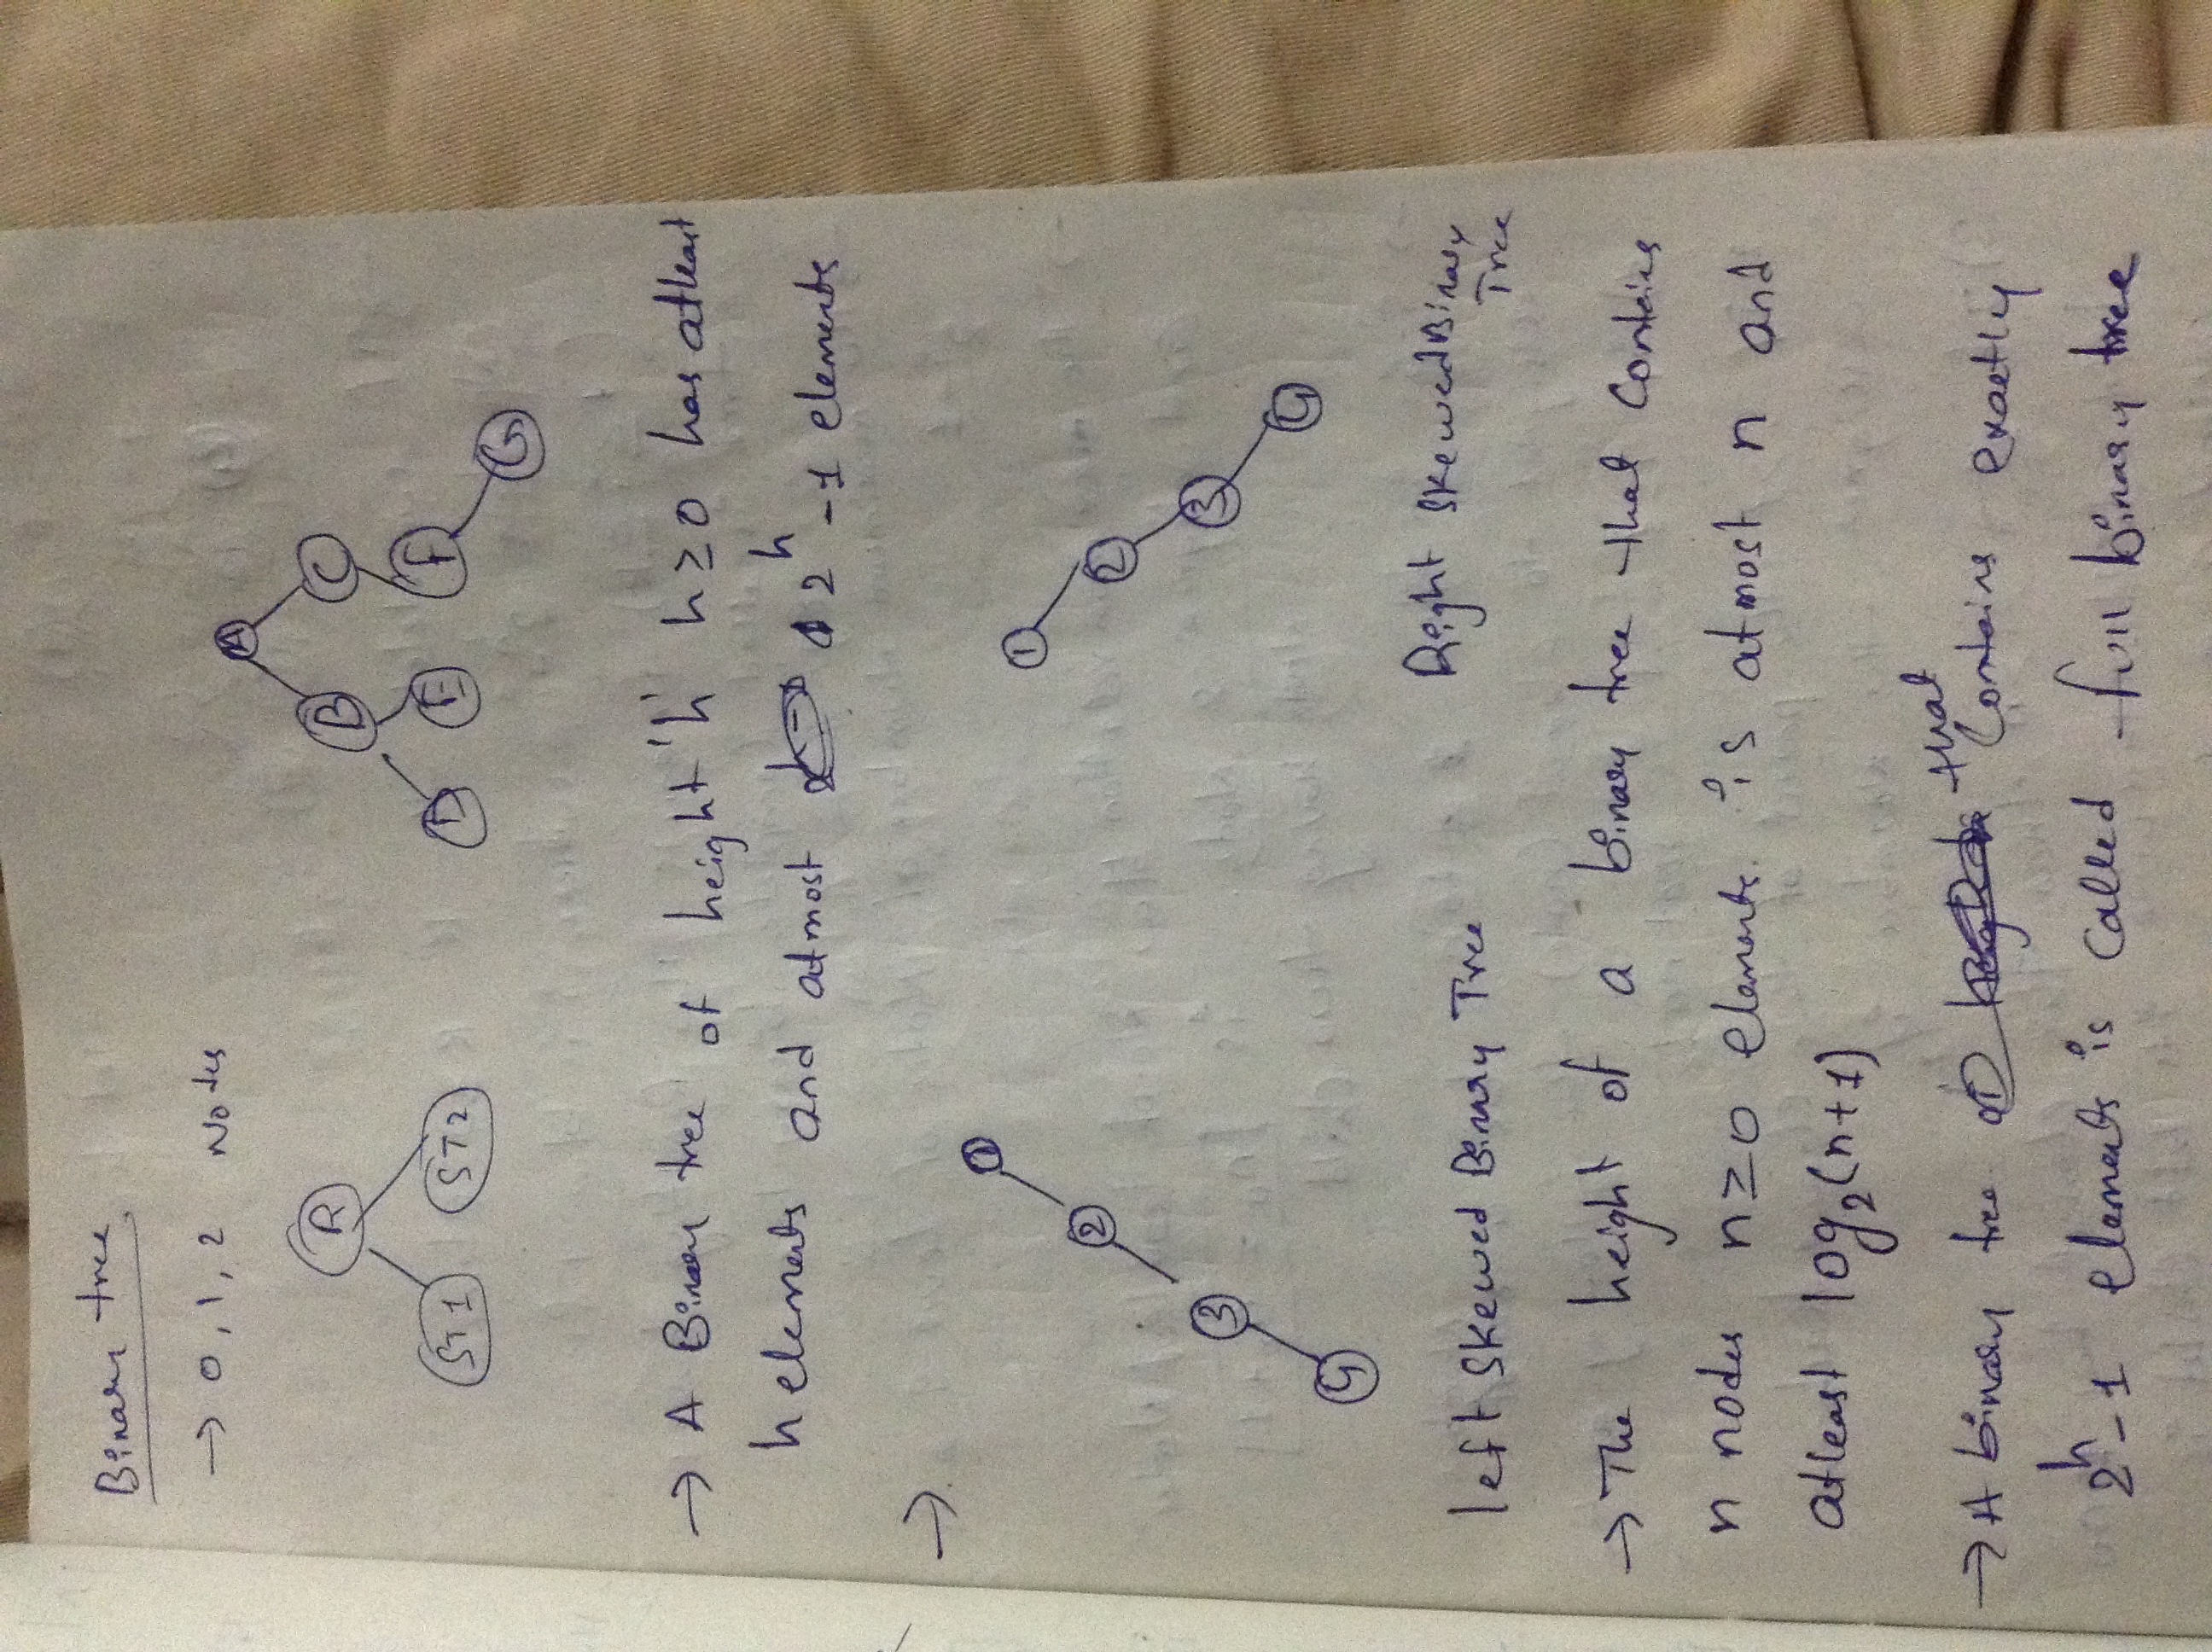 Binary tree
→ 0, 1, 2 Notes
R
ST1 ST2
A
B C
D E F
G
→ A Binary tree of height 'h' h ≥ 0 has atleast
h elements and atmost 2^h - 1 elements
→
1
2
3
4
1
2
3
4
left Skewed Binary Tree
Right Skewed Binary
Tree
→ The height of a binary tree that Contains
n nodes n ≥ 0 elements. is atmost n and
atleast log₂(n+1)
→ A binary tree that Contains exactly
2^h - 1 elements is called full binary tree